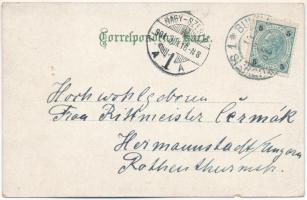 Correspondenz-Karte.
NAGY-SZE
5
5
Hochwohlgeboren
Frau Rittmeister Čermák
Hermannstadt/Ungarn
Rothenthurmstr.